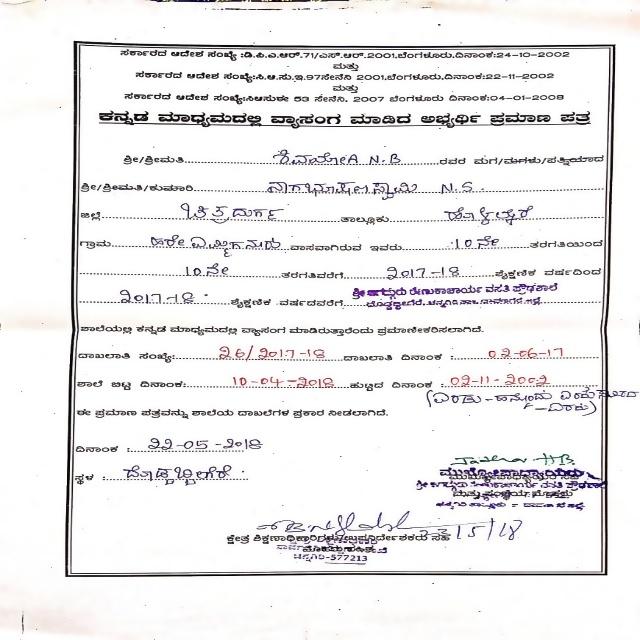 ಸರ್ಕಾರದ ಆದೇಶ ಸಂಖ್ಯೆ :ಡಿ.ಪಿ.ಎ.ಆರ್.71/ಎಸ್.ಆರ್.2001,ಬೆಂಗಳೂರು,ದಿನಾಂಕ:24-10-2002
ಮತ್ತು
ಸರ್ಕಾರದ ಆದೇಶ ಸಂಖ್ಯೆ:ಸಿ.ಆ.ಸು.ಇ.97ಸೇನೆನಿ 2001,ಬೆಂಗಳೂರು,ದಿನಾಂಕ:22-11-2002
ಮತ್ತು
ಸರ್ಕಾರದ ಆದೇಶ ಸಂಖ್ಯೆ:ಸಿಆಸುಈ 53 ಸೇನೆನಿ. 2007 ಬೆಂಗಳೂರು ದಿನಾಂಕ:04-01-2008
ಕನ್ನಡ ಮಾಧ್ಯಮದಲ್ಲಿ ವ್ಯಾಸಂಗ ಮಾಡಿದ ಅಭ್ಯರ್ಥಿ ಪ್ರಮಾಣ ಪತ್ರ
ಶ್ರೀ/ಶ್ರೀಮತಿ N.B ರವರ ಮಗ/ಮಗಳು/ಪತ್ನಿಯಾದ
ಶ್ರೀ/ಶ್ರೀಮತಿ/ಕುಮಾರಿ ನಾಗಭೂಷಣಸ್ವಾಮಿ N.S.
ಜಿಲ್ಲೆ ಚಿತ್ರದುರ್ಗ ತಾಲ್ಲೂಕು ಹೊಳಲ್ಕೆರೆ
ಗ್ರಾಮ ವಾಸವಾಗಿರುವ ಇವರು 10ನೇ ತರಗತಿಯಿಂದ
10ನೇ ತರಗತಿವರೆಗೆ 2017-18 ಶೈಕ್ಷಣಿಕ ವರ್ಷದಿಂದ
2017-18 ಶೈಕ್ಷಣಿಕ ವರ್ಷದವರೆಗೆ ಶ್ರೀ ಜಗದ್ಗುರು ರೇಣುಕಾಚಾರ್ಯ ವಸತಿ ಪ್ರೌಢಶಾಲೆ
ಶಾಲೆಯಲ್ಲಿ ಕನ್ನಡ ಮಾಧ್ಯಮದಲ್ಲಿ ವ್ಯಾಸಂಗ ಮಾಡಿರುತ್ತಾರೆಂದು ಪ್ರಮಾಣೀಕರಿಸಲಾಗಿದೆ.
ದಾಖಲಾತಿ ಸಂಖ್ಯೆ: 26/2017-18 ದಾಖಲಾತಿ ದಿನಾಂಕ : 02-06-17
ಶಾಲೆ ಬಿಟ್ಟ ದಿನಾಂಕ: 10-04-2018 ಹುಟ್ಟಿದ ದಿನಾಂಕ : 02-11-2002
(ಎರಡು-ಹನ್ನೊಂದು ಎರಡುಸಾವಿರದ
-ಎರಡು)
ಈ ಪ್ರಮಾಣ ಪತ್ರವನ್ನು ಶಾಲೆಯ ದಾಖಲೆಗಳ ಪ್ರಕಾರ ನೀಡಲಾಗಿದೆ.
ದಿನಾಂಕ : 22-05-2018
ಸ್ಥಳ :
ಮುಖ್ಯೋಪಾಧ್ಯಾಯರು
23/5/18
ಕ್ಷೇತ್ರ ಶಿಕ್ಷಣಾಧಿಕಾರಿಗಳು/ಉಪನಿರ್ದೇಶಕರು ಸಹಿ
ಚನ್ನಗಿರಿ-577213